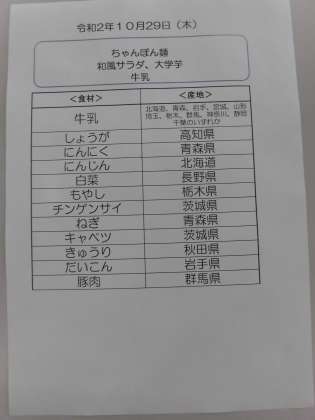 令和2年10月29日（木）
ちゃんぽん麺
和風サラダ、大学芋
牛乳
＜食材＞ ＜産地＞
牛乳 北海道、青森、岩手、宮城、山形
埼玉、栃木、群馬、神奈川、静岡
千葉のいずれか
しょうが 高知県
にんにく 青森県
にんじん 北海道
白菜 長野県
もやし 栃木県
チンゲンサイ 茨城県
ねぎ 青森県
キャベツ 茨城県
きゅうり 秋田県
だいこん 岩手県
豚肉 群馬県